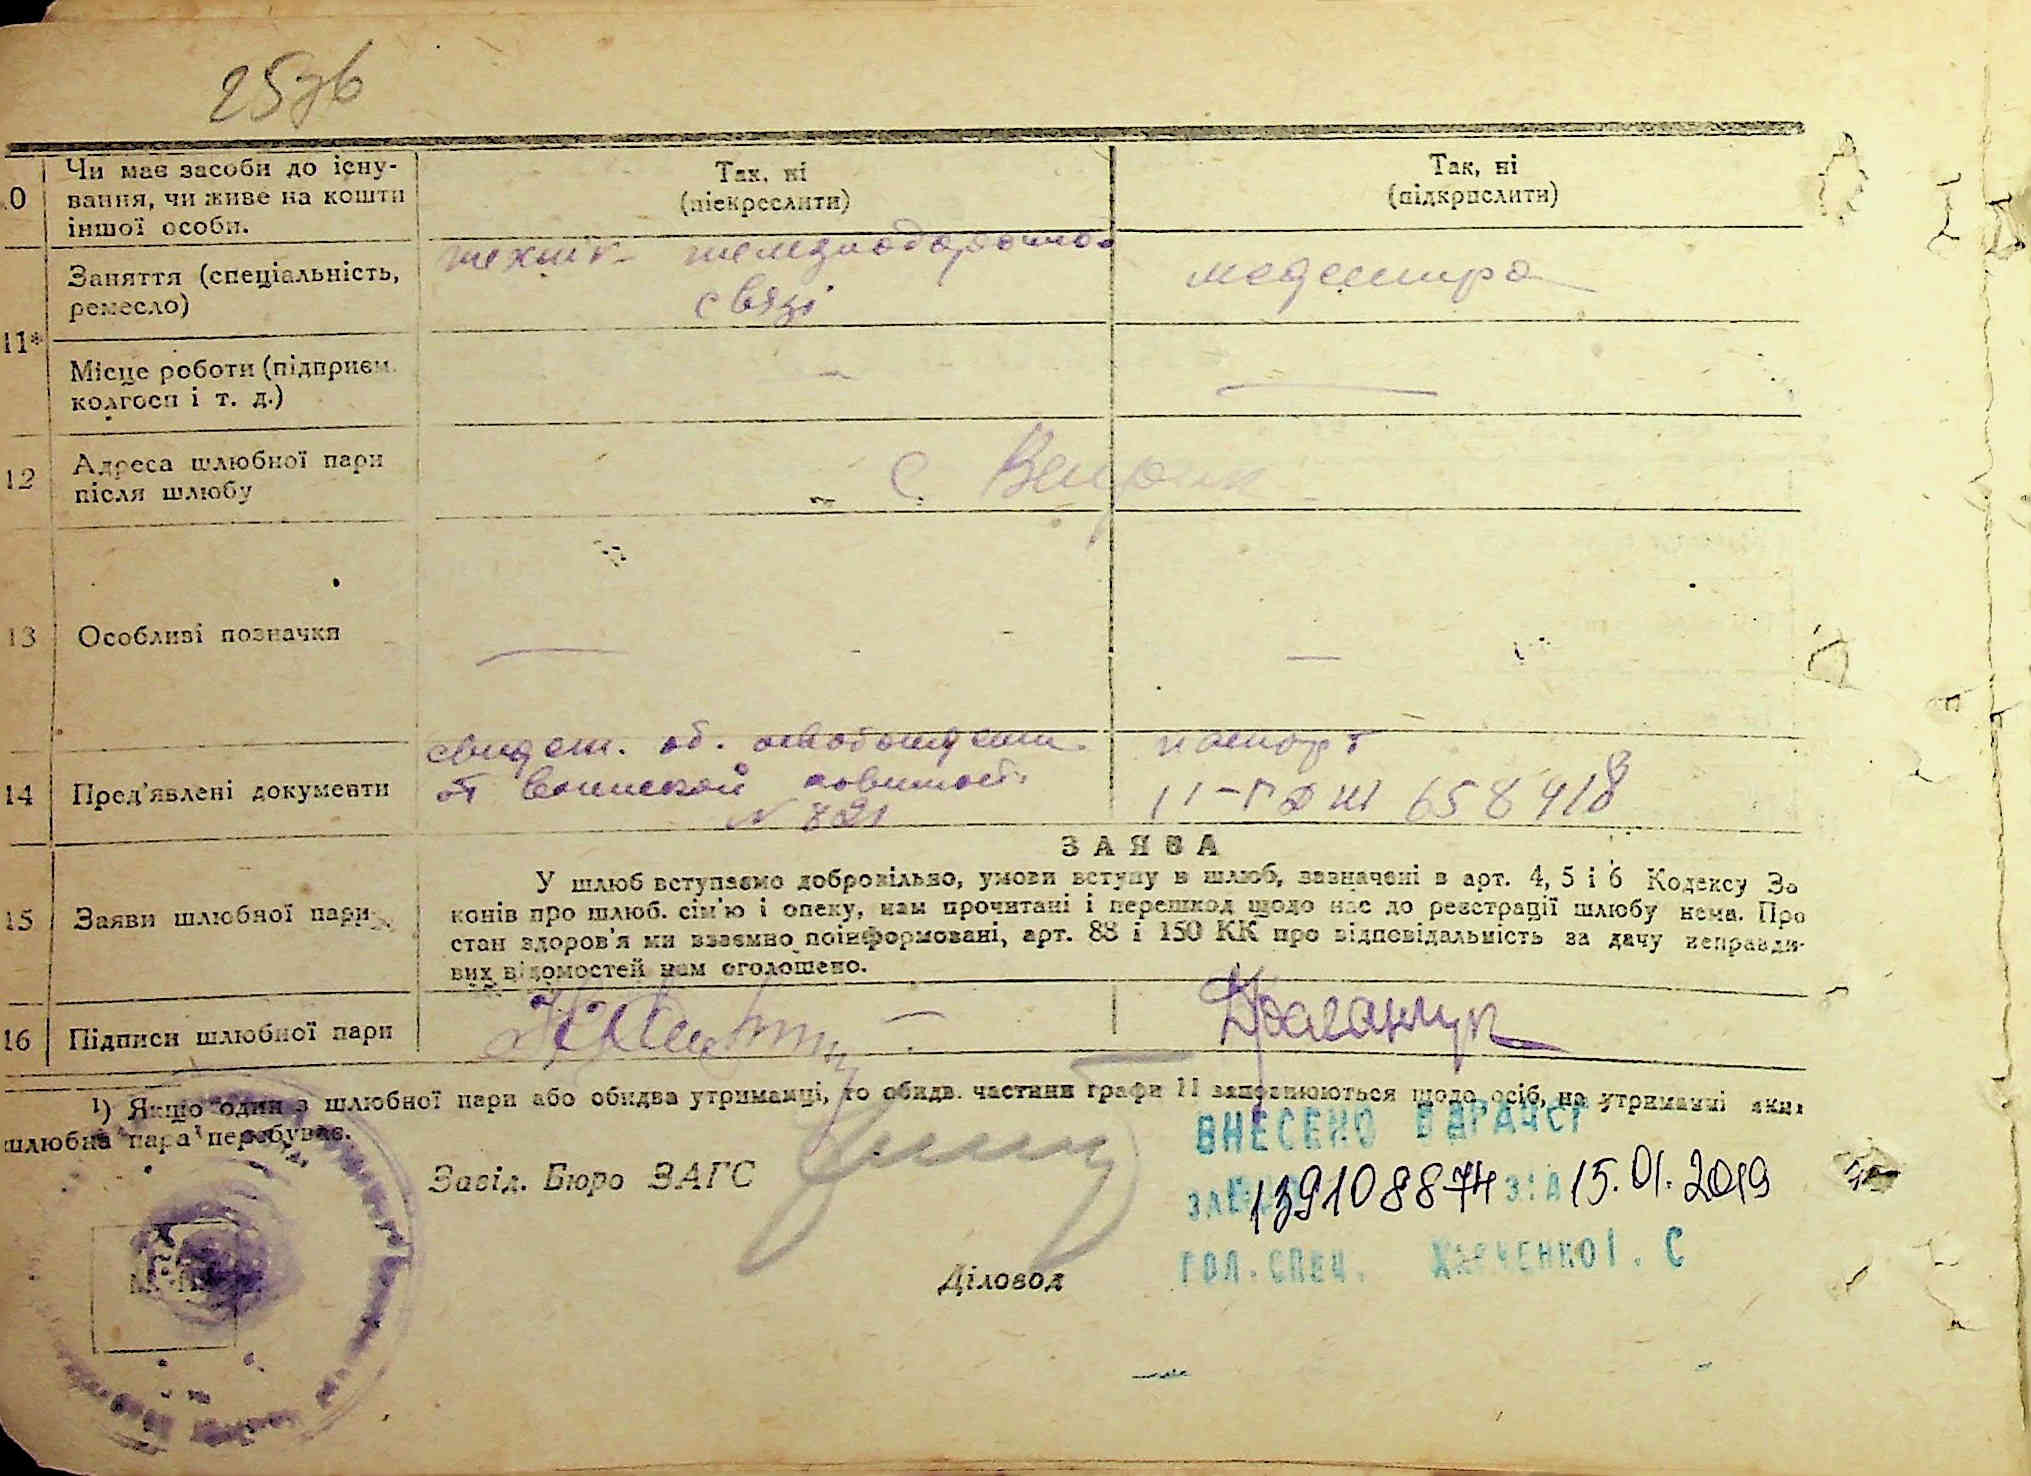 25зв
10 Чи має засоби до існу-
вання, чи живе на кошти
іншої особи.
Так, ні
(підкреслити)
Так, ні
(підкрислити)
11* Заняття (спеціальність,
ремесло)
технік железнодорожной
связі
медсестра
Місце роботи (підприєм.
колгосп і т. д.)
—
—
12 Адреса шлюбної пари
після шлюбу
с
13 Особливі позначки
—
—
14 Пред'явлені документи
свидет. об. освобождени
от воинской повиност.
N 821
паспорт
II-ГФШ 658418
15 Заяви шлюбної пари
ЗАЯВА
У шлюб вступаємо добровільно, умови вступу в шлюб, зазначені в арт. 4, 5 і 6 Кодексу За
конів про шлюб. сім'ю і опеку, нам прочитані і перешкод щодо нас до реєстрації шлюбу нема. Про
стан здоров'я ми взаємно поінформовані, арт. 88 і 150 КК про відповідальність за дачу неправди-
вих відомостей нам оголошено.
16 Підписи шлюбної пари
Драганчук
¹) Якщо один з шлюбної пари або обидва утриманці, то обидв. частини графи 11 заповнюються щодо осіб, на утриманні яких
шлюбна пара перебуває.
Завід. Бюро ЗАГС
Діловод
ВНЕСЕНО В ДРАЦСГ
ЗА № 139108874 ВІД 15.01.2019
ГОЛ. СПЕЦ. ХАРЧЕНКО І. С